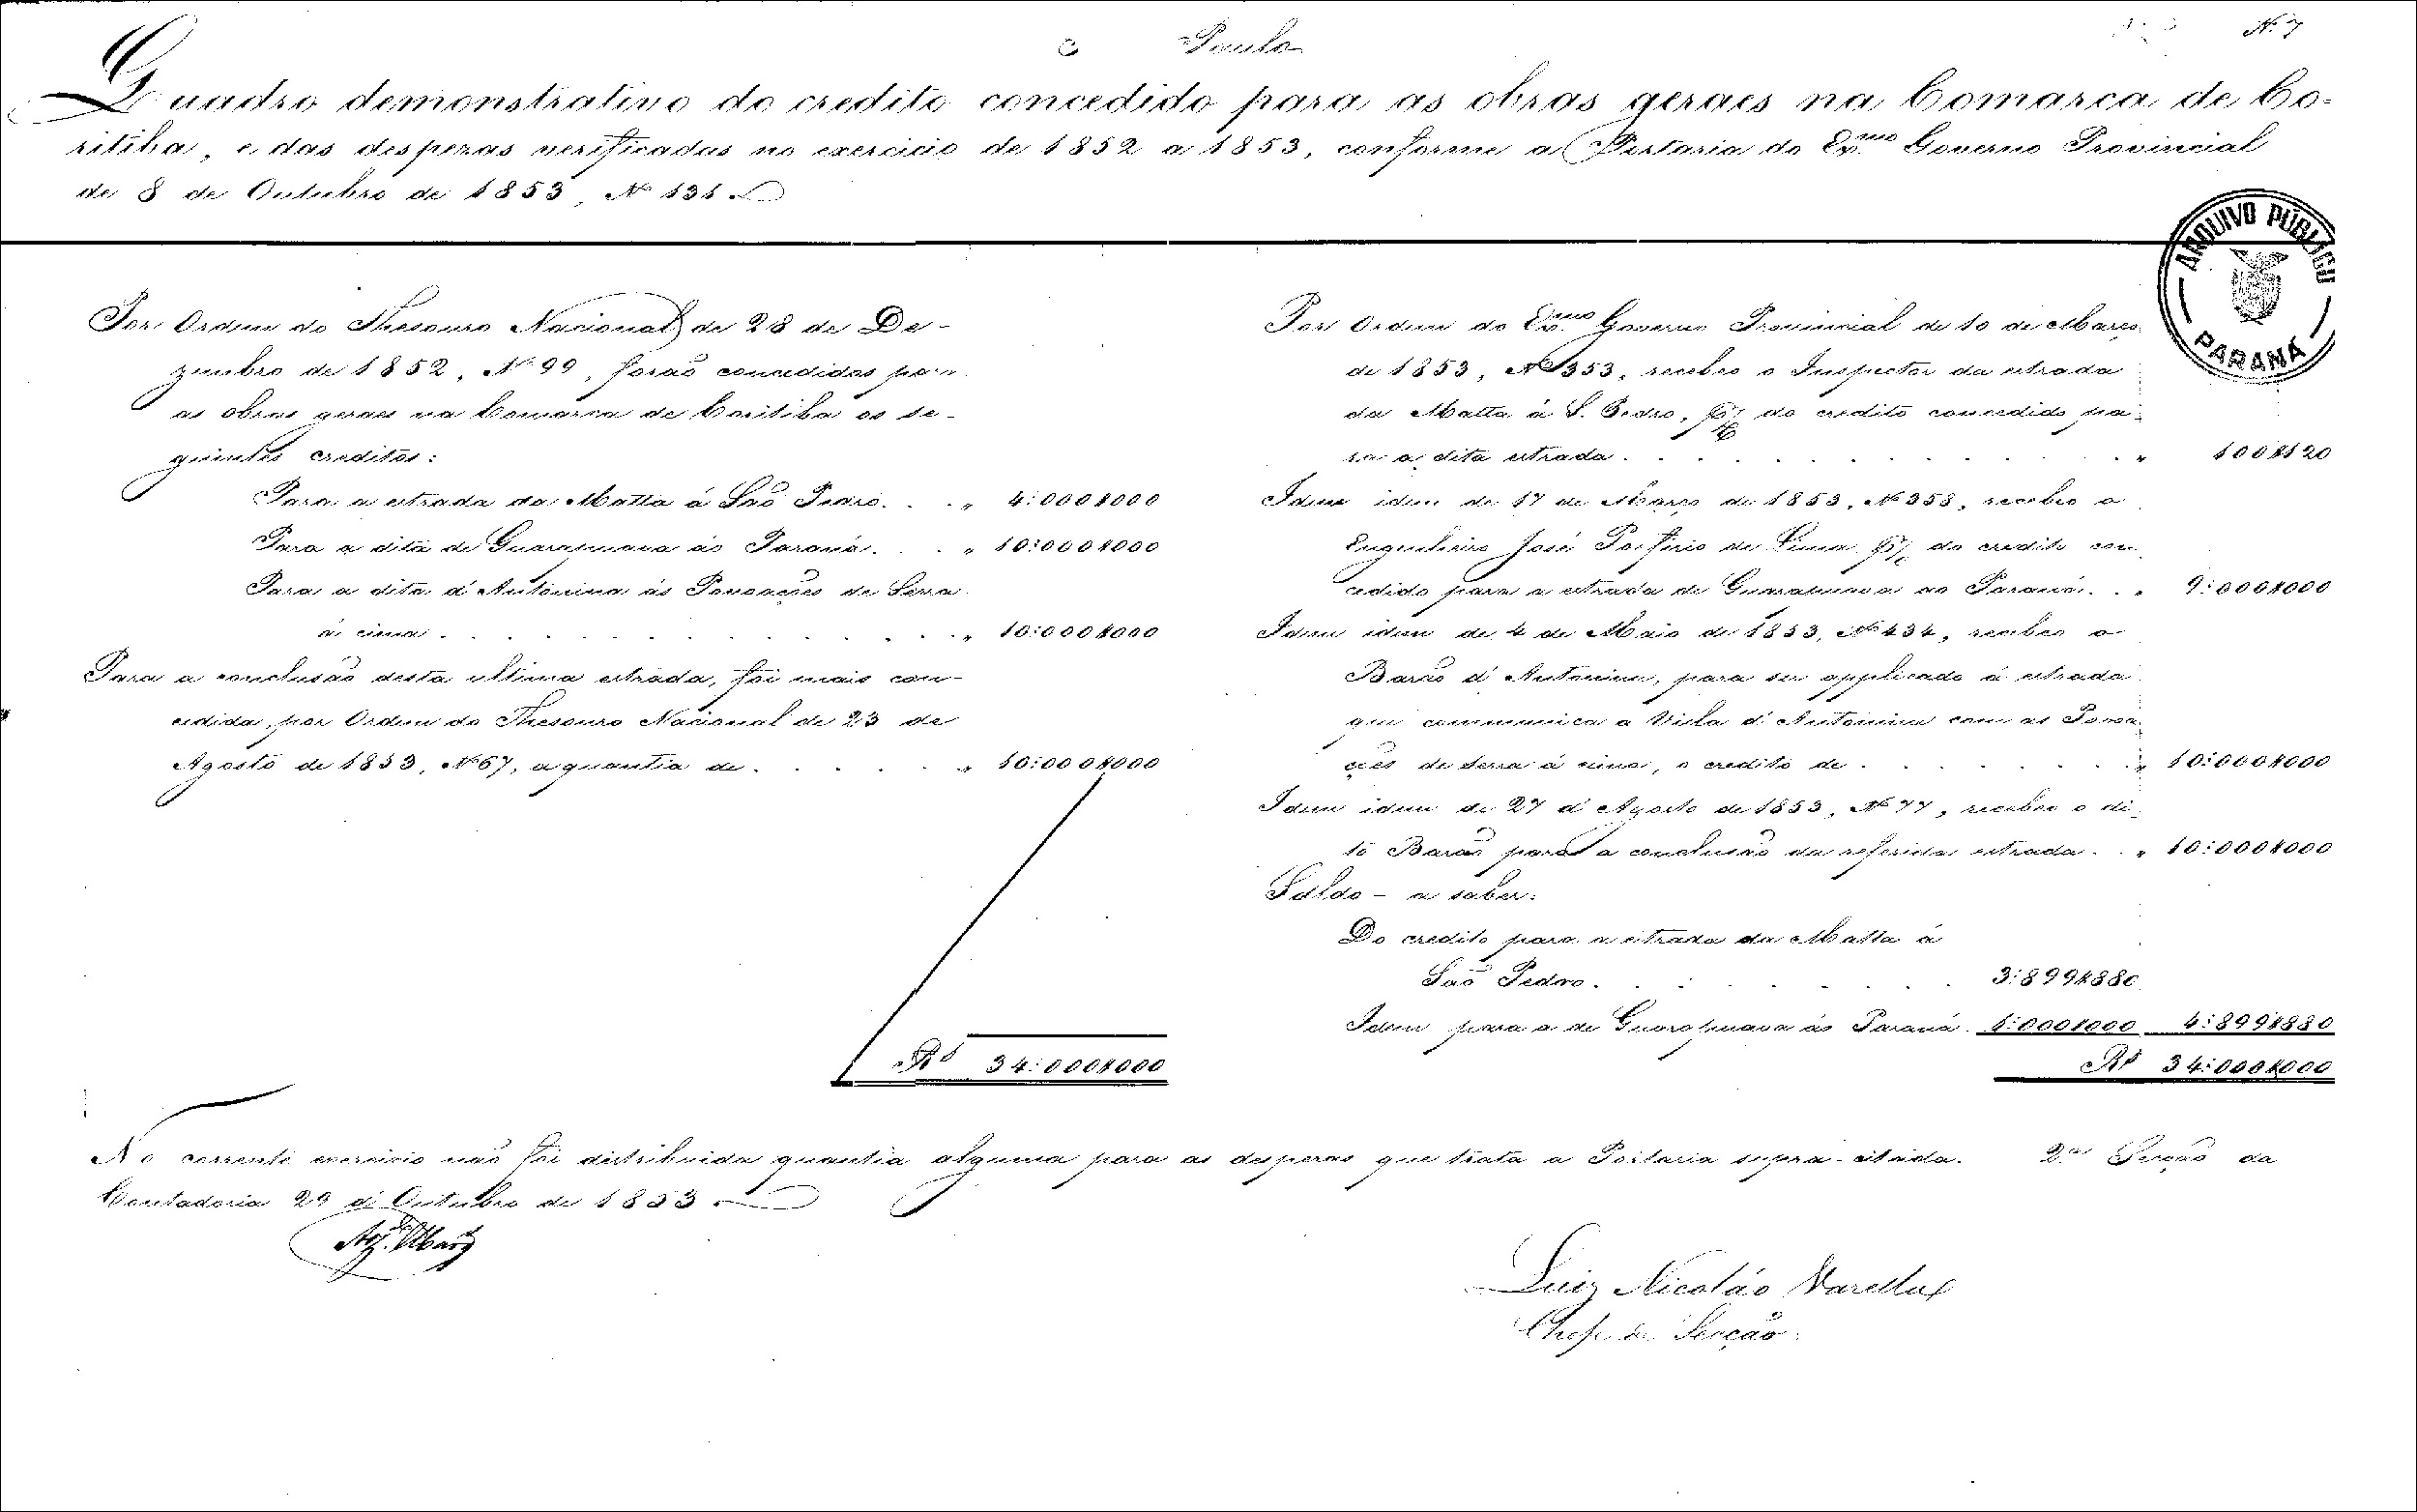 Paulo
N. 7
Quadro demonstrativo do credito concedido para as obras geraes na Comarca de Co-
ritiba, e das despezas verificadas no exercicio de 1852 a 1853, conforme a Portaria do Ex.mo Governo Provincial
de 8 de Outubro de 1853, Nº 131.
ARQUIVO PÚBLICO
PARANÁ
Por Ordem do Thesouro Nacional de 28 de De-
zembro de 1852, Nº 99, forão concedidos para
as obras geraes na Comarca de Coritiba os se-
guintes creditos:
Para a estrada da Matta á São Pedro. . . " 4:000$000
Para a dita de Guarapuava ao Paraná. . . " 10:000$000
Para a dita d'Antonina ás Povoações de Serra
á cima . . . . . . . . . . " 10:000$000
Para a conclusão desta ultima estrada, foi mais con-
cedida, por Ordem do Thesouro Nacional de 23 de
Agosto de 1853, Nº 67, a quantia de . . . . . " 10:000$000
Rs 34:000$000
Por Ordem do Ex.mo Governo Provincial de 10 de Março
de 1853, Nº 353, recebeo o Inspector da estrada
da Matta á S. Pedro, do credito concedido pa-
ra a dita estrada . . . . . . . . . " 100$120
Idem idem de 17 de Março de 1853, Nº 358, recebeo o
Engenheiro José Porfirio de Lima, do credito con-
cedido para a estrada de Guarapuava ao Paraná. . . " 9:000$000
Idem idem de 4 de Maio de 1853, Nº 434, recebeo o
Barão d'Antonina, para ser applicado á estrada
que communica a Villa d'Antonina com as Povoa-
ções de Serra á cima, o credito de . . . . . . " 10:000$000
Idem idem de 27 d'Agosto de 1853, Nº 77, recebeo o di-
to Barão para a conclusão da referida estrada. . " 10:000$000
Saldo - a saber:
Do credito para a estrada da Matta á
São Pedro. . . . . . . . 3:899$880
Idem para a de Guarapuava ao Paraná. 1:000$000 4:899$880
Rs 34:000$000
No corrente exercicio não foi distribuida quantia alguma para as despezas que trata a Portaria supra-citada. 2.a Secção da
Contadoria 29 d'Outubro de 1853
Luiz Nicoláo Varella
Chefe de Secção.